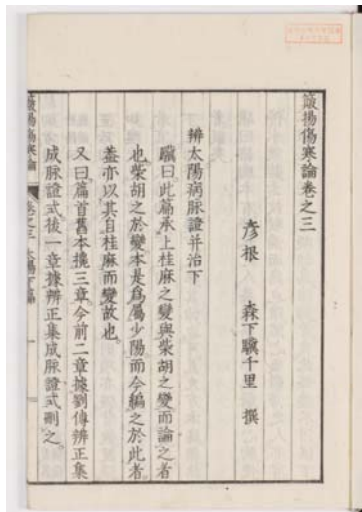 簸揚傷寒論卷之三
彦根 森下驥千里 撰
辨太陽病脉證并治下
驥曰此篇承上桂麻之變與柴胡之變而論之者
也柴胡之於變本是爲屬少陽而今編之於此者
蓋亦以其自桂麻而變故也
又曰篇首舊本攙三章今前二章據劉傳辨正集
成脉證式後一章據辨正集成脉證式刪之
簸揚傷寒論 卷之三 太陽下篇 一